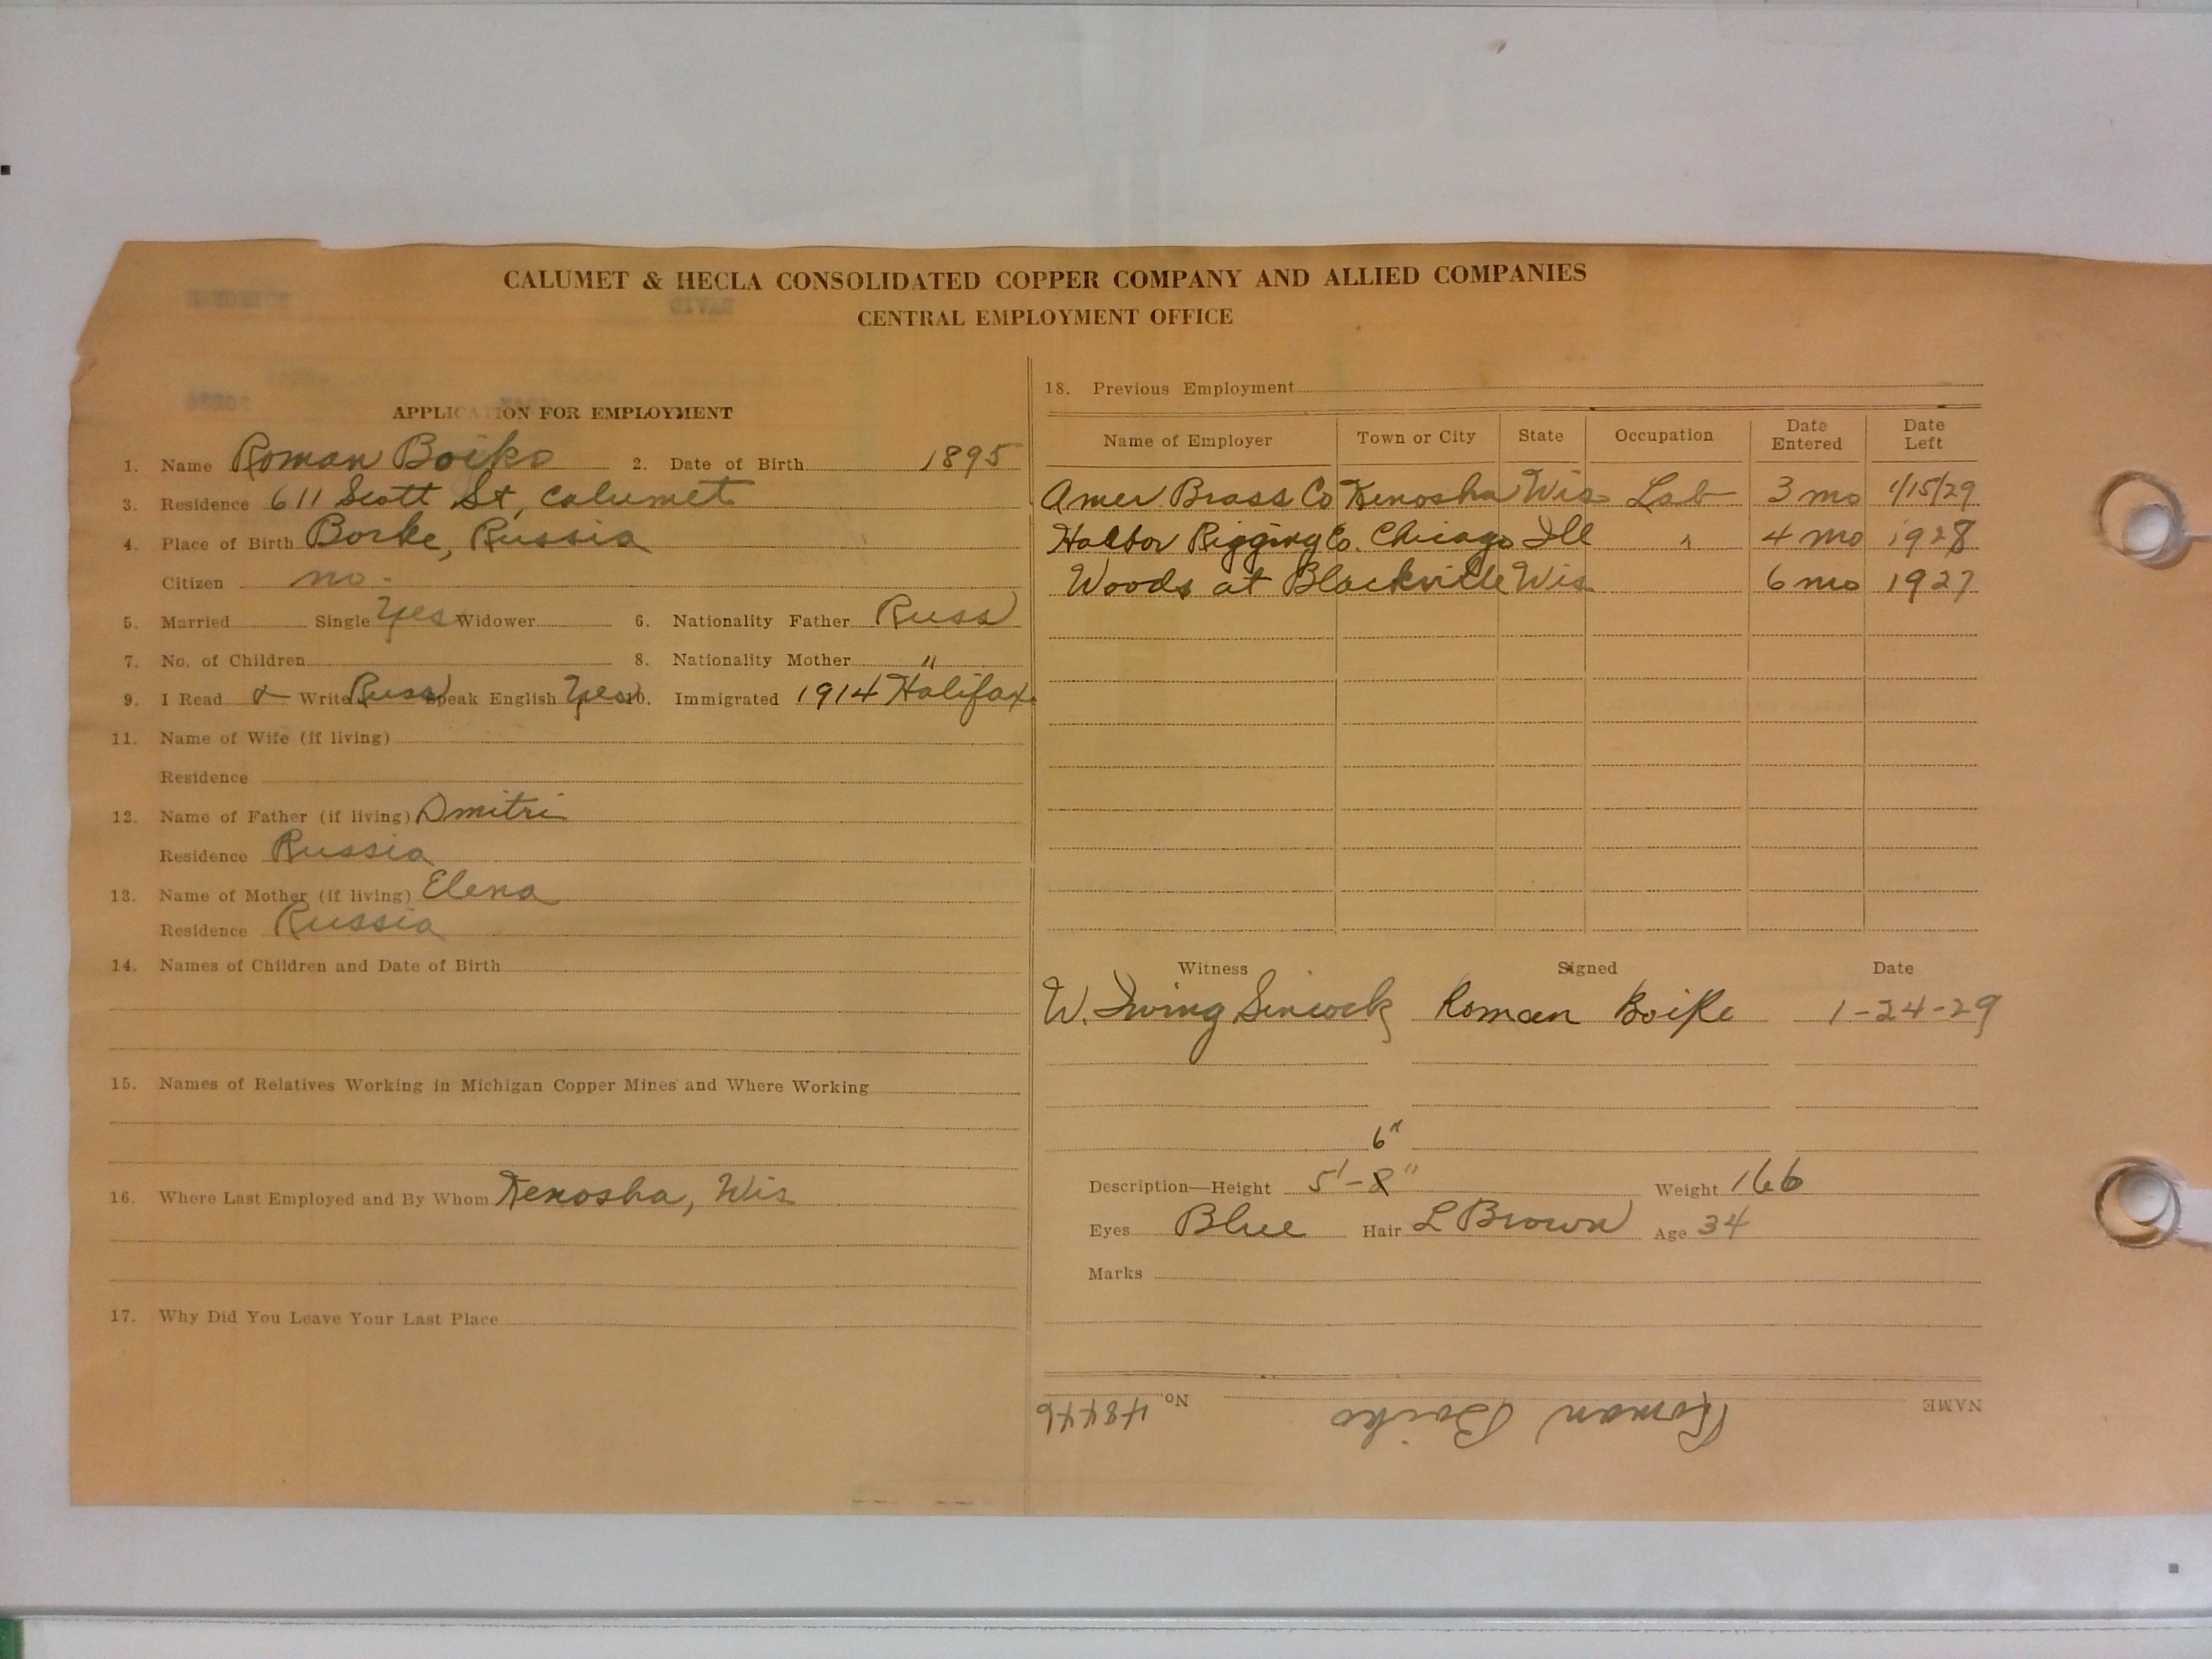 CALUMET & HECLA CONSOLIDATED COPPER COMPANY AND ALLIED COMPANIES
CENTRAL EMPLOYMENT OFFICE
APPLICATION FOR EMPLOYMENT
1. Name Roman Boiko 2. Date of Birth 1895
3. Residence 611 Scott St, Calumet
4. Place of Birth Borke, Russia
Citizen no.
5. Married Single Yes Widower 6. Nationality Father Russ
7. No. of Children 8. Nationality Mother "
9. I Read & Write Russ Speak English Yes 10. Immigrated 1914 Halifax
11. Name of Wife (if living)
Residence
12. Name of Father (if living) Dmitri
Residence Russia
13. Name of Mother (if living) Elena
Residence Russia
14. Names of Children and Date of Birth
15. Names of Relatives Working in Michigan Copper Mines and Where Working
16. Where Last Employed and By Whom Kenosha, Wis
17. Why Did You Leave Your Last Place
18. Previous Employment
Name of Employer Town or City State Occupation Date Entered Date Left
Amer Brass Co Kenosha Wis Lab 3 mo 1/15/29
Rigging Co. Chicago Ill " 4 mo 1928
Woods at Blackville Wis 6 mo 1927
Witness Signed Date
W. Irving Sincock Roman Boike 1-24-29
6"
Description—Height 5'-8" Weight 166
Eyes Blue Hair L Brown Age 34
Marks
NAME Roman Boiko No. 48446